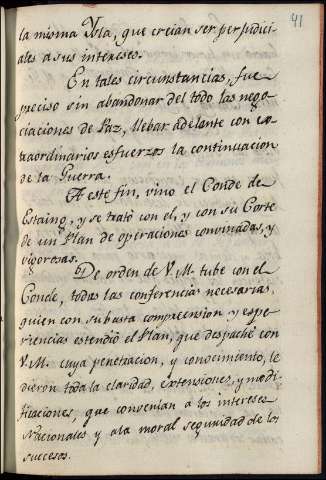 41
la misma Ysla, que creian ser perjudici-
ales a sus intereses.
En tales circunstancias, fue
preciso sin abandonar del todo las nego-
ciaciones de Paz, llebar adelante con ex-
traordinarios esfuerzos la continuacion
de la Guerra.
A este fin, vino el Conde de
Estaing, y se trató con el, y con su Corte
de un Plan de operaciones convinadas, y
vigorosas.
De orden de V. M. tube con el
Conde, todas las conferencias necesarias,
quien con su basta comprension y espe-
riencias estendió el Plan, que despaché con
V. M. cuya penetracion, y conocimiento, le
dieron toda la claridad, extensiones, y modi-
ficaciones, que convenian a los intereses
Nacionales y ala moral seguridad de los
sucesos.